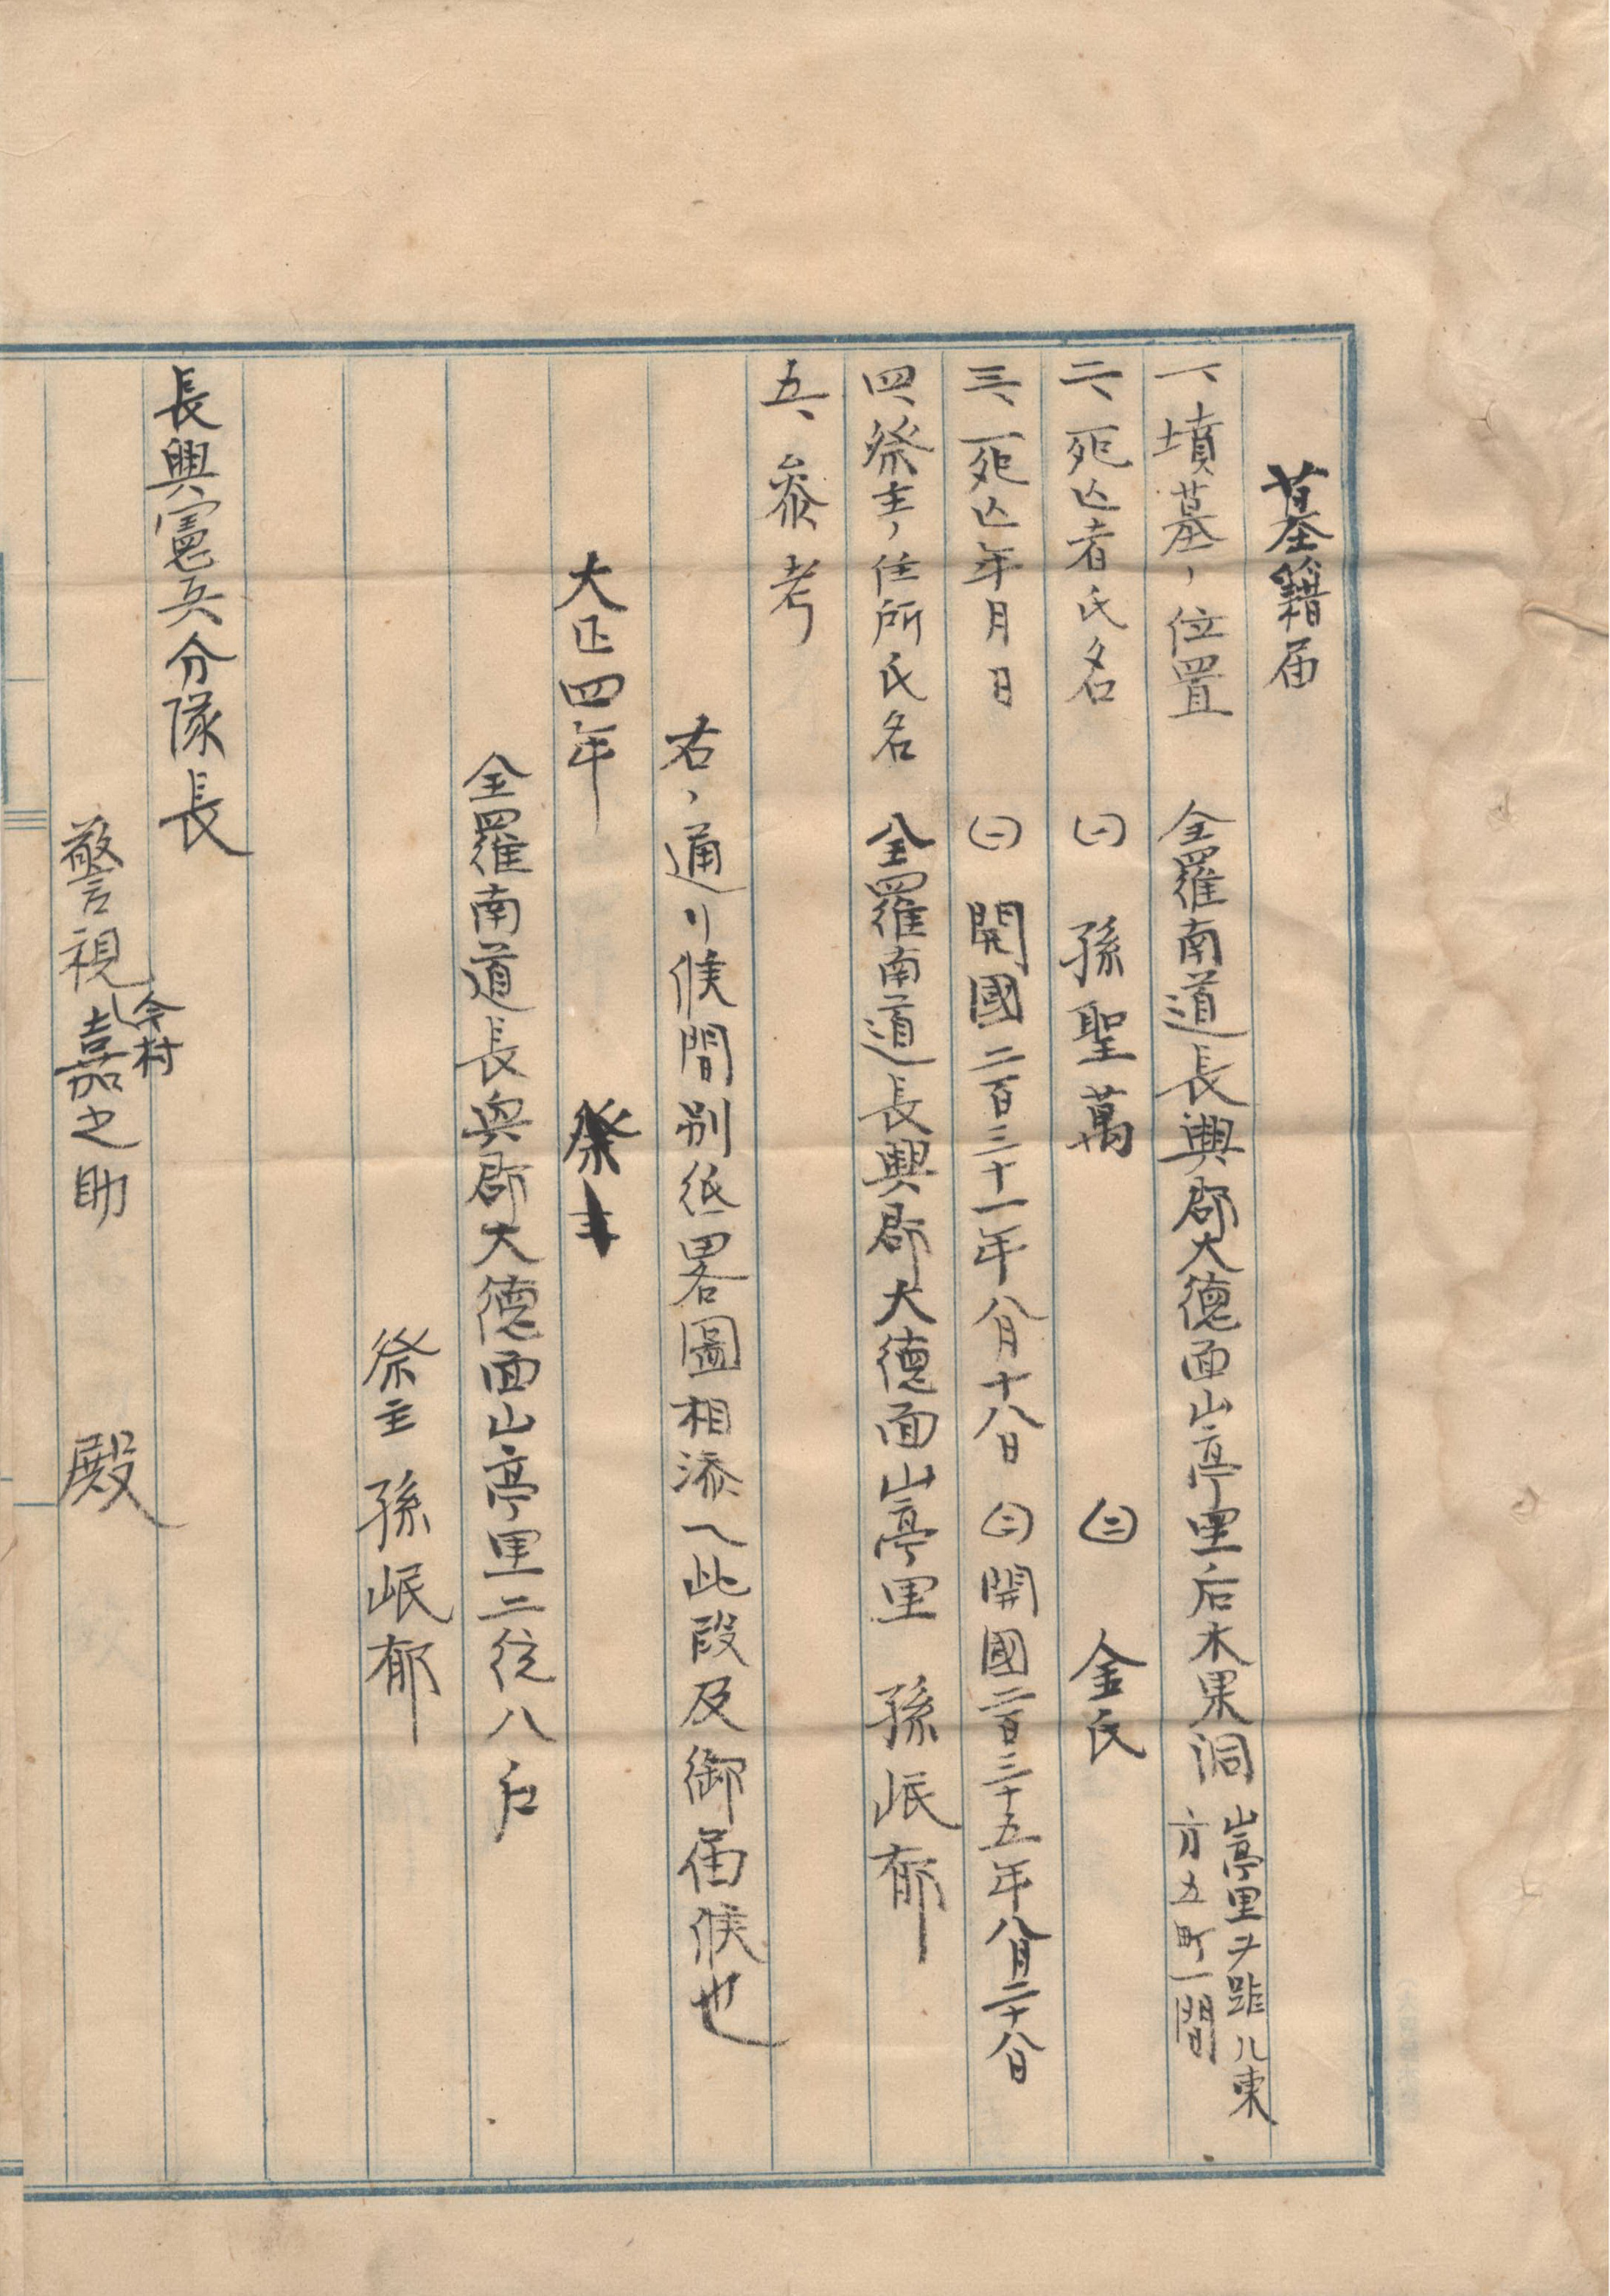 墓籍届
一、墳墓ノ位置 全羅南道長興郡大德面山亭里后木果洞 山亭里ヲ距ル東
方五町一間
二、死亡者氏名 (一) 孫聖萬 (二) 金氏
三、死亡年月日 (一) 開國二百三十一年八月十八日 (二) 開國二百三十五年八月二十八日
四、祭主ノ住所氏名 全羅南道長興郡大德面山亭里 孫岷郁
五、參考
右ノ通リ候間別紙畧圖相添ヘ此段及御届候也
大正四年 祭主
全羅南道長興郡大德面山亭里二統八戶
祭主 孫岷郁
長興憲兵分隊長
警視今村嘉之助 殿